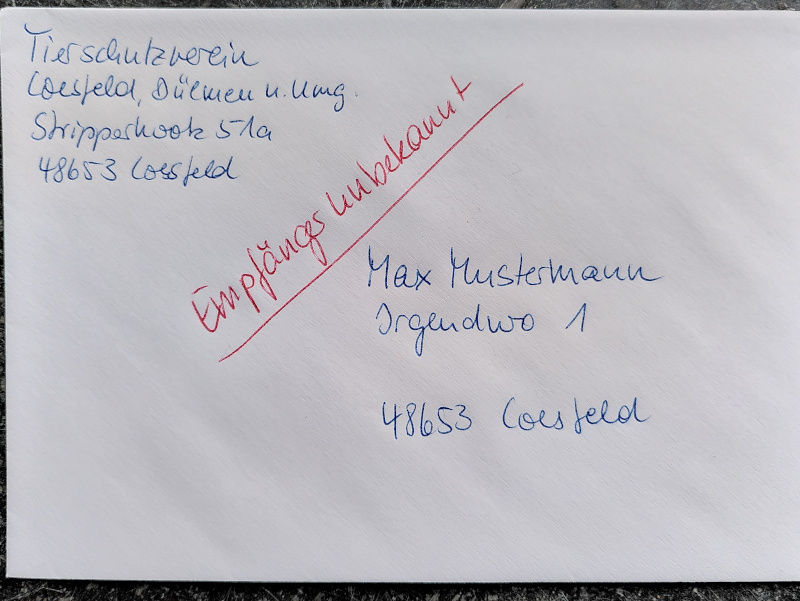 Tierschutzverein
Coesfeld, Dülmen u. Umg.
Stripperhook 51a
48653 Coesfeld
Empfänger unbekannt
Max Mustermann
Irgendwo 1
48653 Coesfeld